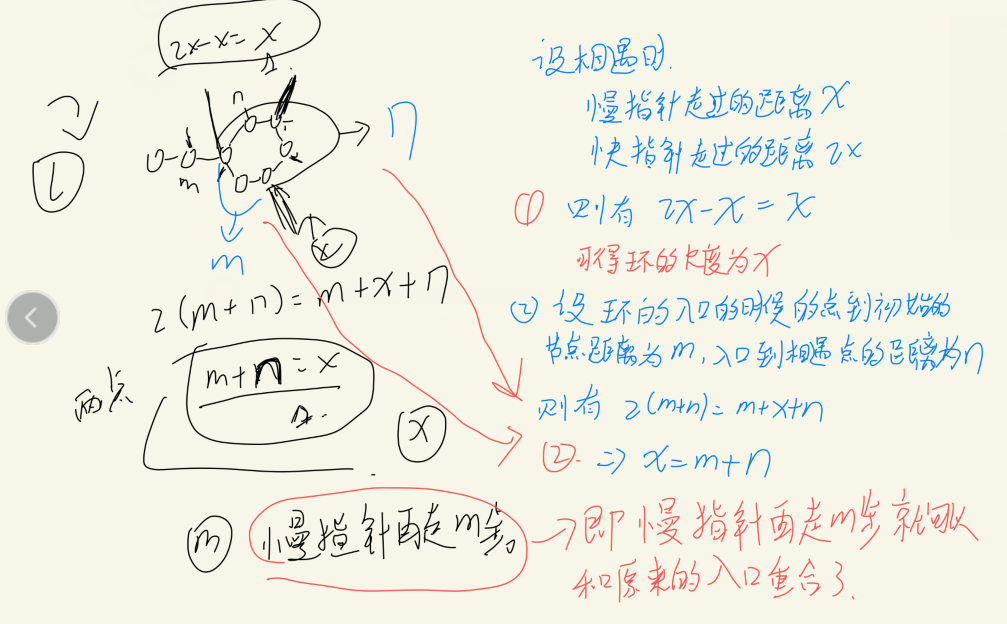 2x-x=x
n
m
n
m
x
2(m+n)=m+x+n
m+n=x
两点
x
m
慢指针再走m步。
设相遇时.
慢指针走过的距离x
快指针走过的距离2x
① 则有 2x-x=x
可得环的长度为x
② 设环的入口的时候的点到初始的
节点距离为m,入口到相遇点的距离为n
则有 2(m+n)=m+x+n
②. => x=m+n
→即慢指针再走m步就可以
和原来的入口重合了.